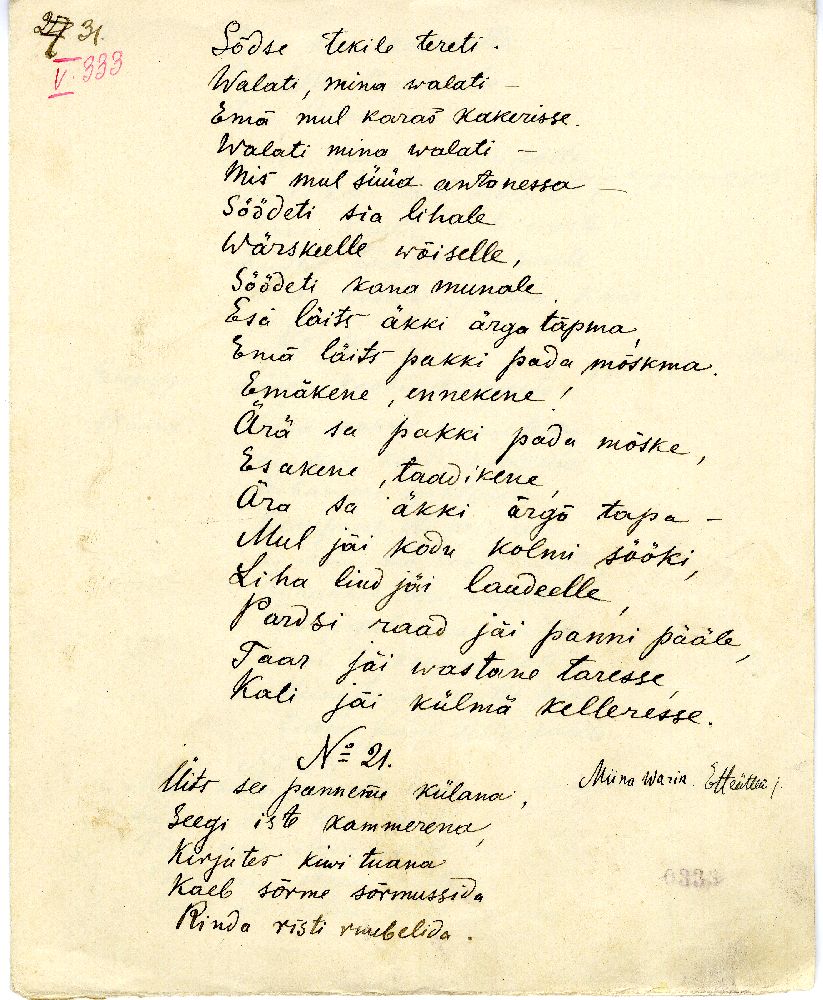 31.
V. 333
Sõdse tekile tereti.
Walati, mina walati –
Emä mul karas kakerisse.
Walati mina walati –
Mis mul süüd antanessa –
Söödeti sia lihale
Wärskeelle wõiselle,
Söödeti kana munale
Esä läits äkki ärga tapma,
Emä läits pakki pada mõskma.
Emäkene, ennekene!
Ärä sa pakki pada mõske,
Esakene, taadikene,
Ära sa äkki ärgö tapa –
Mul jäi kodu kolmi sööki,
Liha liud jäi laudeelle,
Pardsi raad jäi panni pääle,
Taar jäi wastane taresse,
Kali jäi külmä kelleresse.
№ 21.
Üits see panneme külana,
Miina Waria
Seegi iste kammerena,
Kirjutes kiwi tuana
Kaeb sõrme sõrmussida
Rinda risti ruubelida.
0333